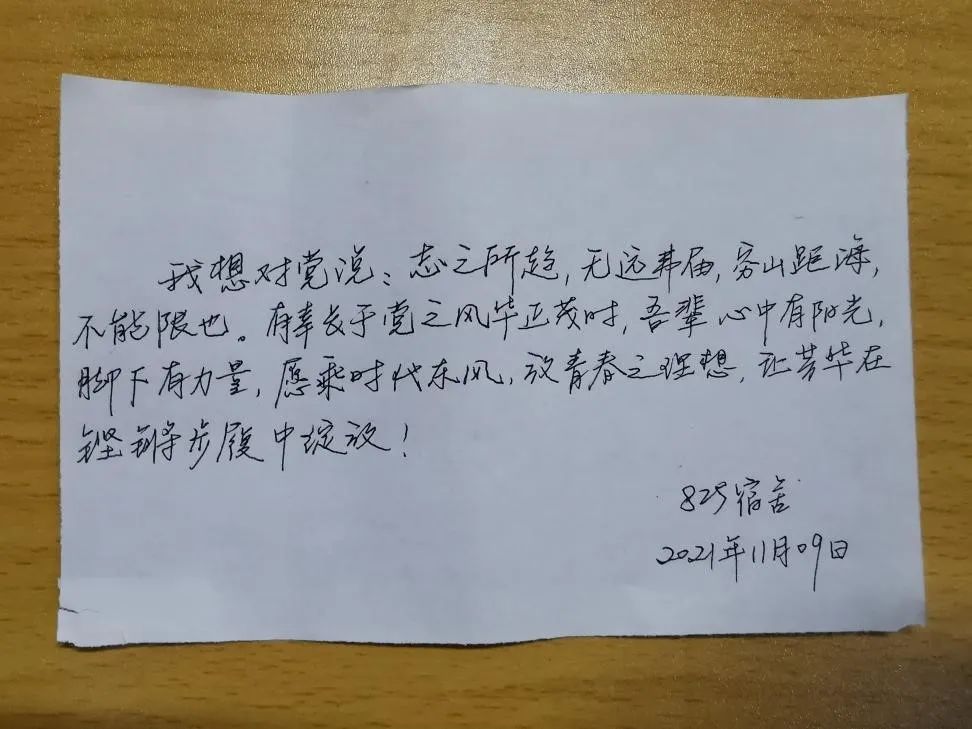 我想对党说：志之所趋,无远弗届,穷山距海,
不能限也。有幸长于党之风华正茂时,吾辈心中有阳光,
脚下有力量,愿乘时代东风,放青春之理想,让芳华在
铿锵步履中绽放！
825宿舍
2021年11月09日